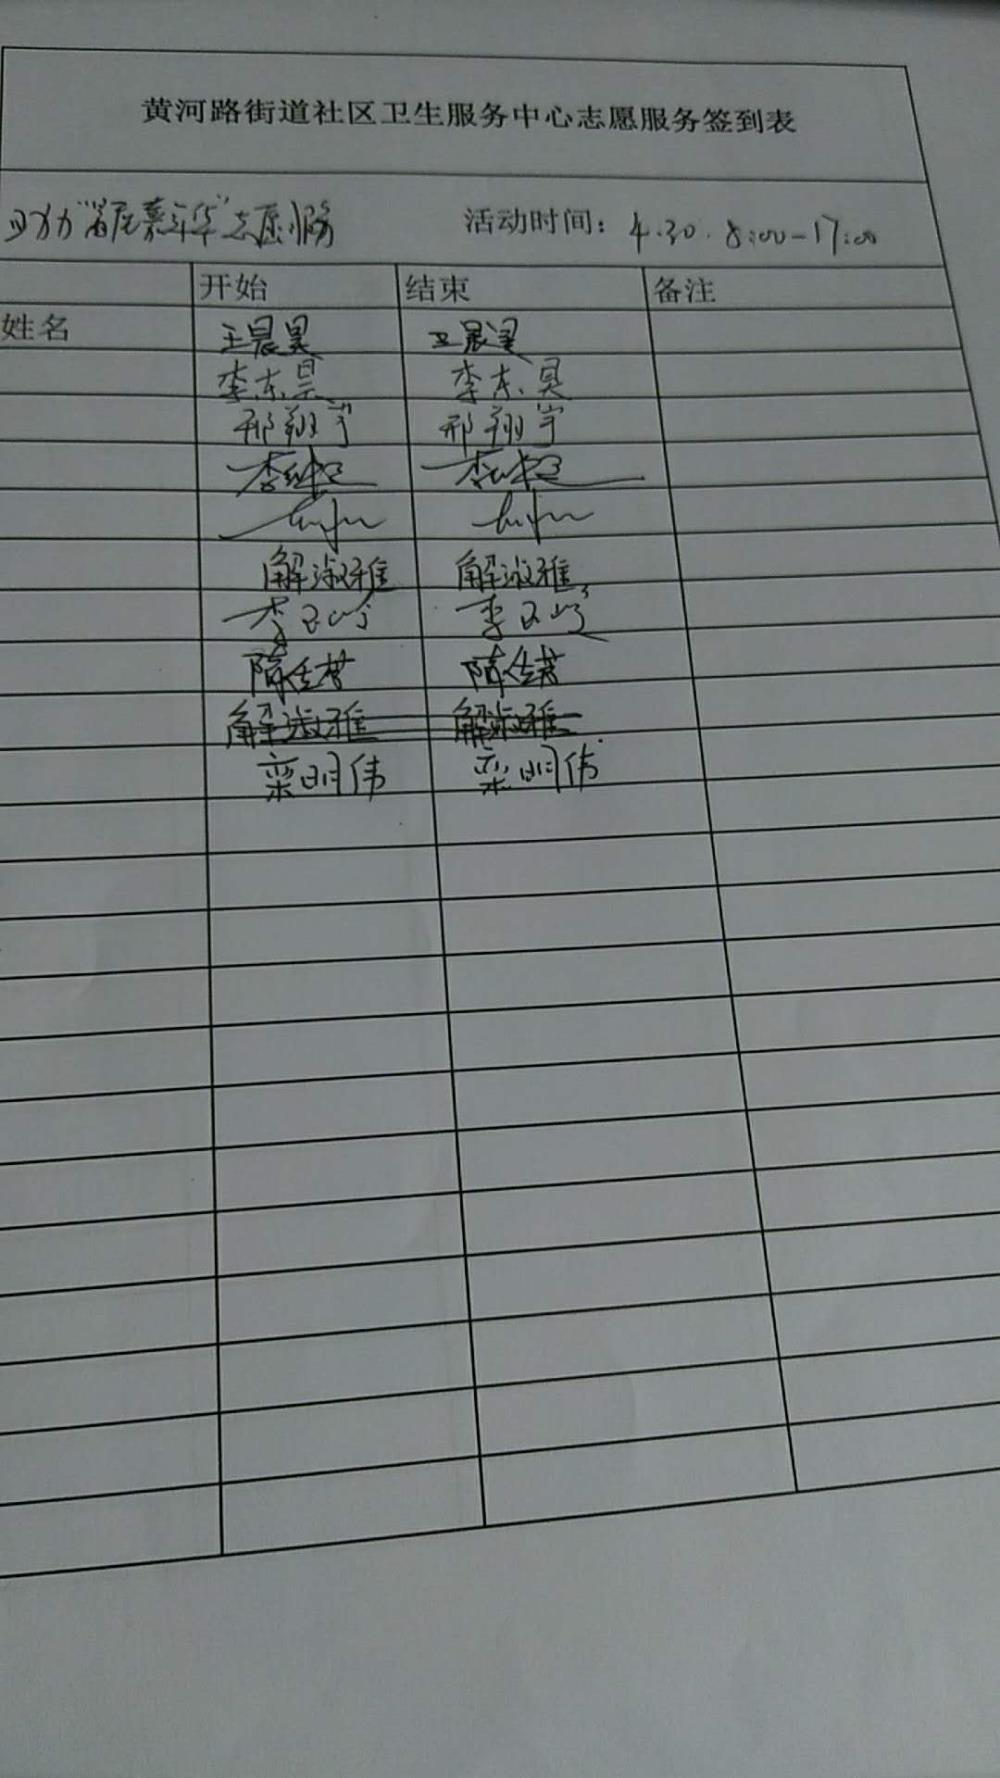 黄河路街道社区卫生服务中心志愿服务签到表
助力“首届嘉年华”志愿服务 活动时间：4.30.8:00-17:00
开始 结束 备注
姓名 王晨昊 王晨昊
李东昊 李东昊
邢翔宇 邢翔宇
李
解淑雅 解淑雅
李 李
陈佳 陈佳
解淑雅 解淑雅
栾明伟 栾明伟